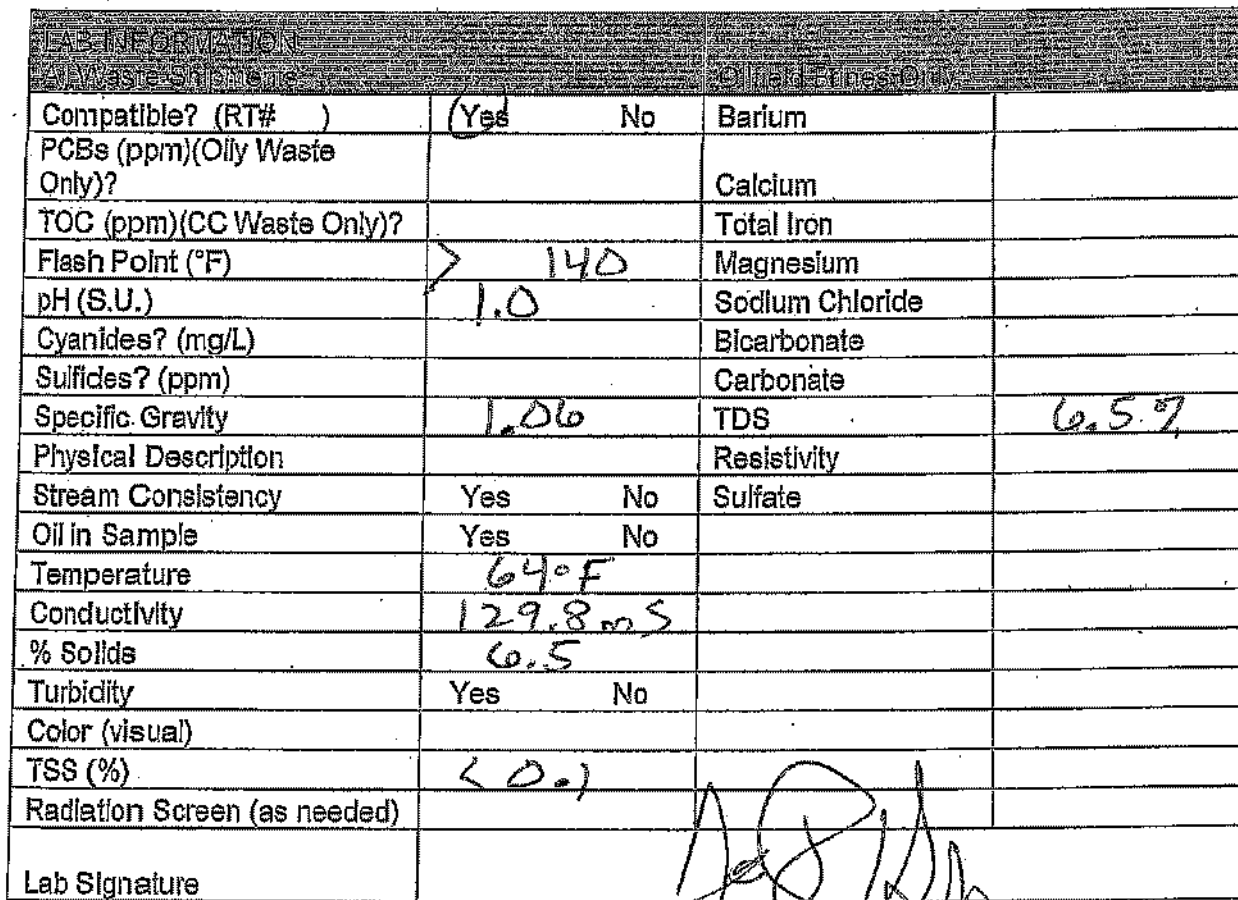 LAB INFORMATION
All Waste Shipments Oilfield Brines Only
Compatible? (RT# ) Yes No Barium
PCBs (ppm)(Oily Waste
Only)? Calcium
TOC (ppm)(CC Waste Only)? Total Iron
Flash Point (°F) > 140 Magnesium
pH (S.U.) 1.0 Sodium Chloride
Cyanides? (mg/L) Bicarbonate
Sulfides? (ppm) Carbonate
Specific Gravity 1.06 TDS 6.5%
Physical Description Resistivity
Stream Consistency Yes No Sulfate
Oil in Sample Yes No
Temperature 64°F
Conductivity 129.8 mS
% Solids 6.5
Turbidity Yes No
Color (visual)
TSS (%) < 0.1
Radiation Screen (as needed)
Lab Signature